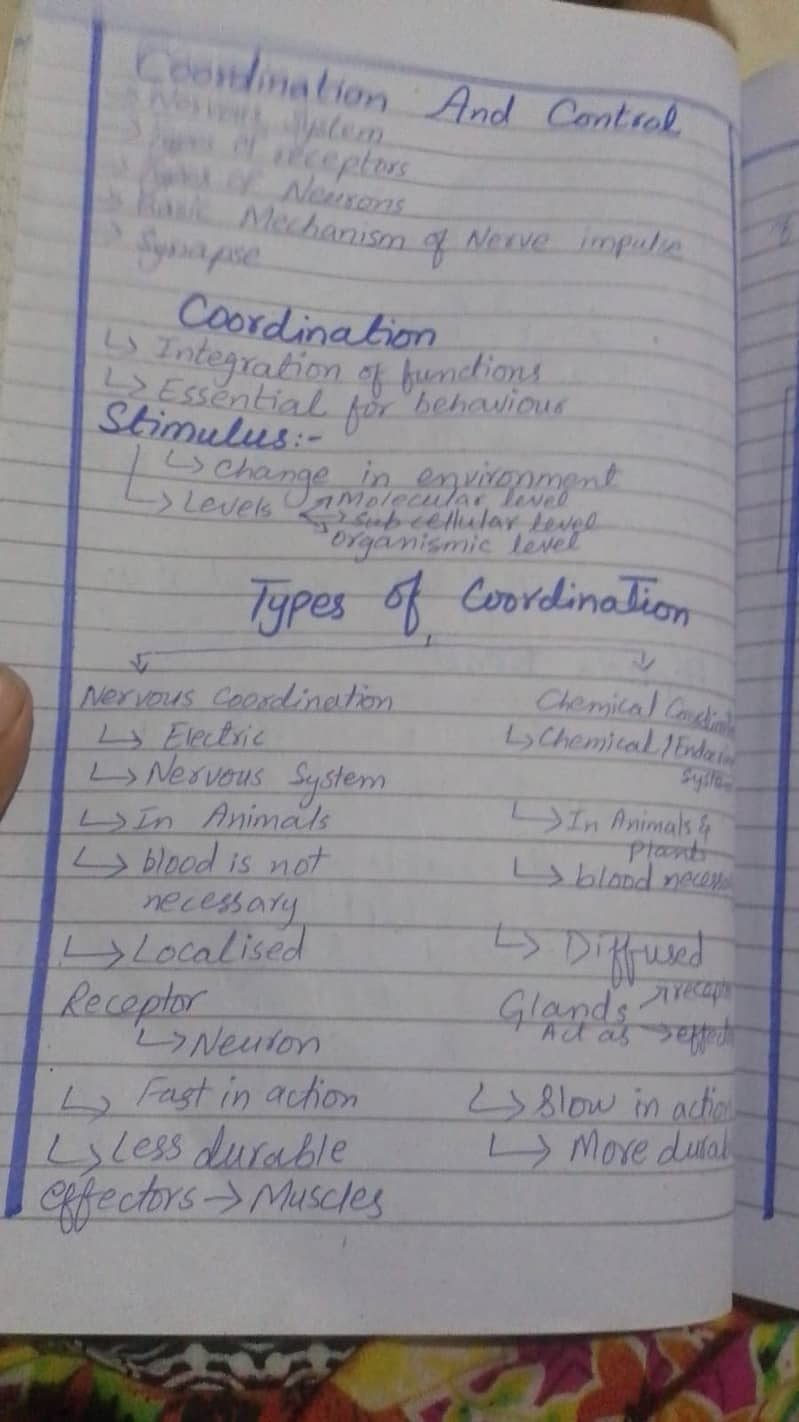 Coordination And Control
Nervous System
of receptors
of Neurons
Basic Mechanism of Nerve impulse
Synapse
Coordination
↳ Integration of functions
↳ Essential for behaviour
Stimulus:-
↳ change in environment
↳ Levels → Molecular level
→ sub cellular level
organismic level
Types of Coordination
Nervous Coordination
↳ Electric
↳ Nervous System
↳ In Animals
↳ blood is not
necessary
↳ Localised
Receptor
↳ Neuron
↳ Fast in action
↳ Less durable
effectors → Muscles
Chemical
↳ Chemical /
System
↳ In Animals &
Plants
↳ blood
↳ Diffused
Glands →
Act as →
↳ Slow in action
↳ More